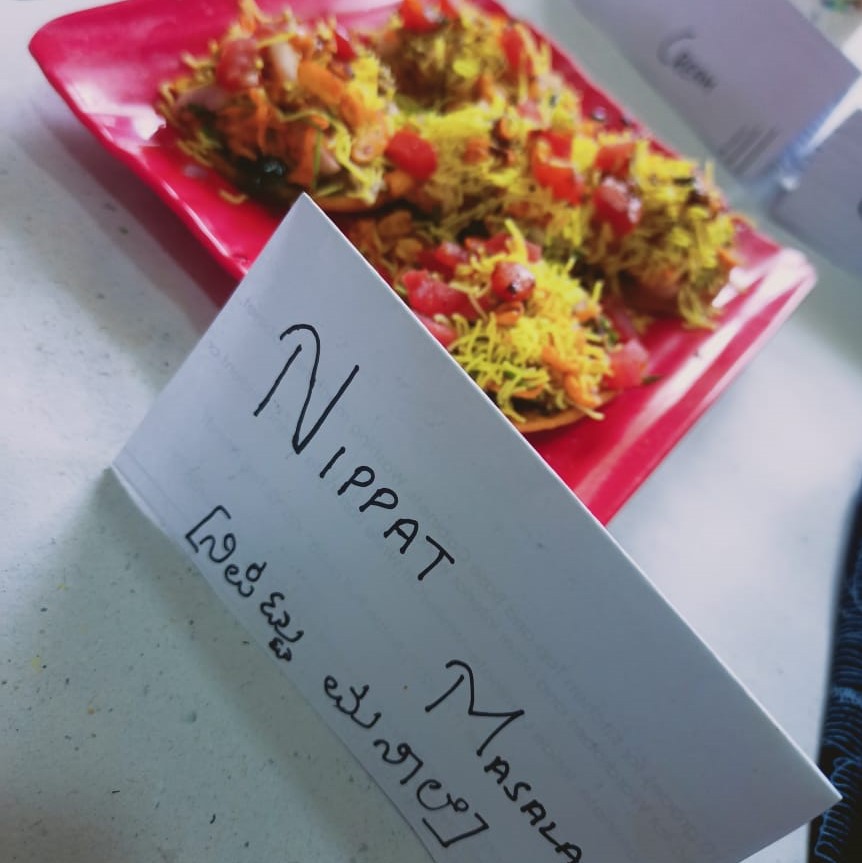 NIPPAT MASALA
[ನಿಪ್ಪಟ್ಟು ಮಸಾಲ]